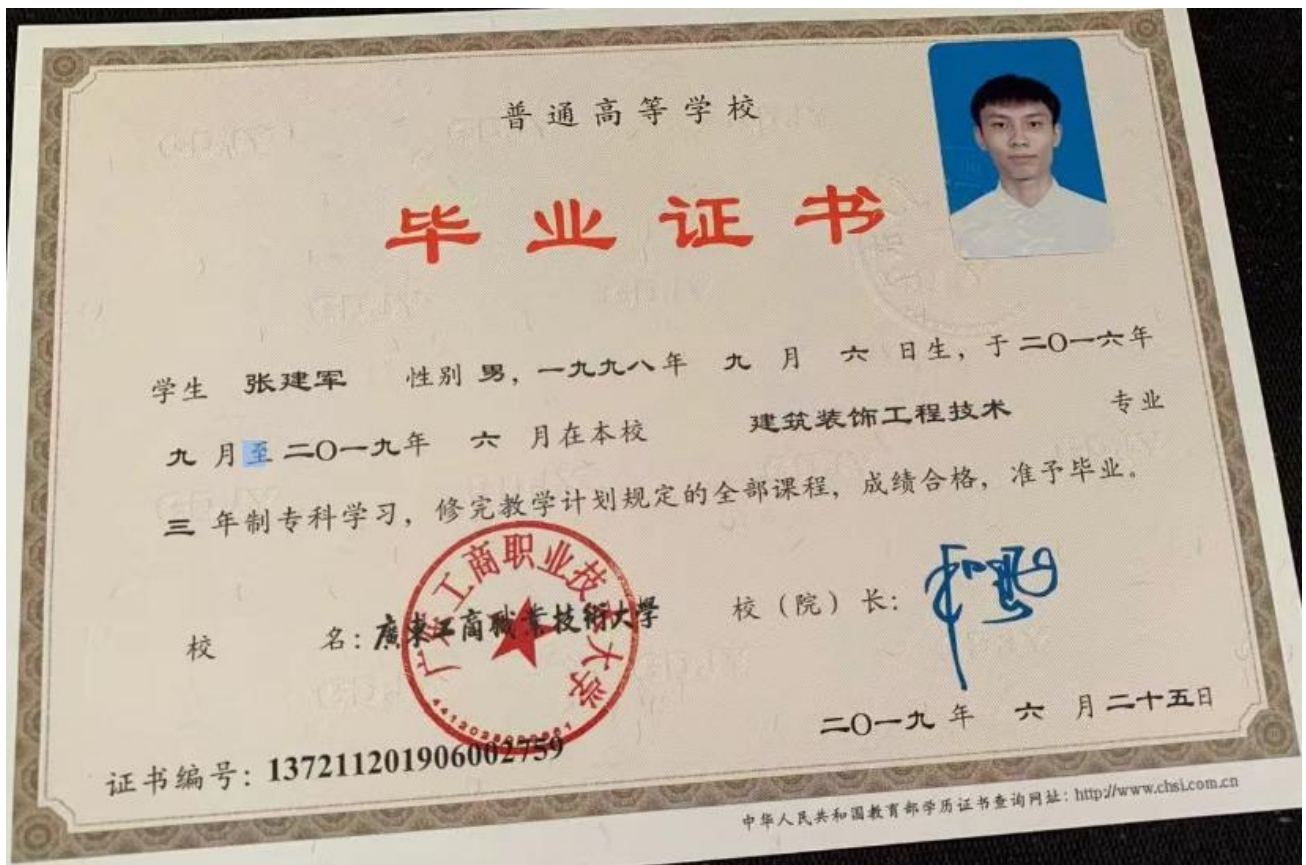 普通高等学校
毕业证书
学生 张建军 性别 男，一九九八年 九 月 六 日生，于二〇一六年
九 月至二〇一九年 六 月在本校 建筑装饰工程技术 专业
三 年制专科学习，修完教学计划规定的全部课程，成绩合格，准予毕业。
校 名：廣東工商職業技術大學 校（院）长：
二〇一九 年 六 月二十五日
证书编号：137211201906002759
中华人民共和国教育部学历证书查询网址：http://www.chsi.com.cn
广东工商职业技术大学